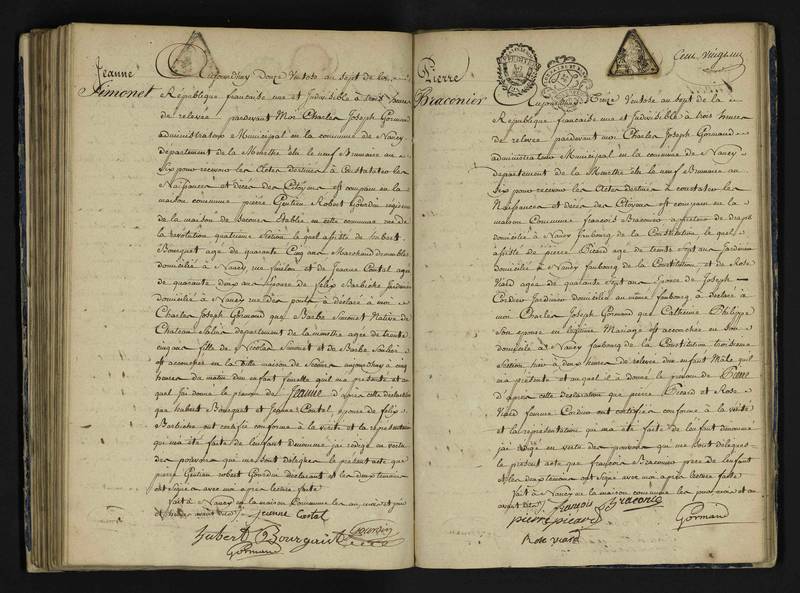 Jeanne
Simonet
Aujourdhuy Douze Ventose an sept de la
République française une et Indivisible à trois heures
de relevée pardevant Moi Charles Joseph Gormand
administrateur Municipal en la commune de Nancy
departement de la Meurthe élu le neuf Brumaire an
Six pour recevoir les Actes destinés à Constater les
Naissances et décès des Citoyens est comparu en la
maison commune pierre Gentien Robert Gourdin regisseur
de la maison de Secours établie en cette commune rue de
la révolution quatrieme Section le quel assisté de hubert
Bourguet age de quarante Cinq ans Marchand de meubles
domicilié à Nancy rue et de Jeanne Contal agée
de quarante deux ans épouse de felix Barbiche Jardinier
domicilié à Nancy rue des ponts à déclaré à moi
Charles Joseph Gormand que Barbe Simonet Native de
Chateau Salin departement de la meurthe agée de trente
cinq ans fille de Nicolas Simonet et de Barbe
est accouchée en la ditte maison de Secours aujourdhuy à cinq
heures du matin d'un enfant femelle quil ma présenté et au
quel Jai donné le prénom de Jeanne d'après cette déclaration
que hubert Bourguet et Jeanne Contal, épouse de felix
Barbiche ont certifié conforme à la verité et la représentation
qui ma été faite de lenfant denommé jai rédigé en vertu
des pouvoirs qui me sont délégués le présent acte que
pierre Gentien robert Gourdin déclarant et les deux temoins
ont signé avec moi après lecture faite
fait à Nancy en la maison commune les an, mois et jour
et heures avant dits Jeanne Contal
hubert Bourgaut Gourdin
Gormand
Pierre
Braconier
Cent vingt un
Aujourdhui Treize Ventose an sept de la
République française une et Indivisible à trois heures
de relevée pardevant moi Charles Joseph Gormand
administrateur Municipal en la commune de Nancy
departement de la Meurthe élu le neuf Brumaire an
Six pour recevoir les Actes destinés à constater les
Naissances et décès des Citoyens est comparu en la
maison Commune françois Braconier de draps
domicilié à Nancy faubourg de la Constitution le quel
assisté de pierre Picard agé de trente sept ans Jardinier
domicilié à Nancy faubourg de la Constitution et de Rose
Viard agée de quarante sept ans épouse de Joseph
Cordier Jardinier domicilié au même faubourg à déclaré à
moi Charles Joseph Gormand que Catherine Philippe
Son épouse en légitime Mariage est accouchée en Son
domicile à Nancy faubourg de la Constitution troisieme
Section hier à deux heures de relevée d'un enfant Mâle quil
ma présenté et auquel il à donné le prénom de Pierre
d'après cette déclaration que pierre Picard et Rose
Viard femme Cordier ont certifié conforme à la verité
et la représentation qui ma été faite de lenfant dénommé
jai rédigé en vertu des pouvoirs qui me sont délégués
le présent acte que françois Braconier pere de lenfant
et les deux temoins ont signé avec moi après lecture faite
fait à Nancy en la maison commune les jour mois et an
avant dits françois Braconie
pierre picard Gormand
Rose viard